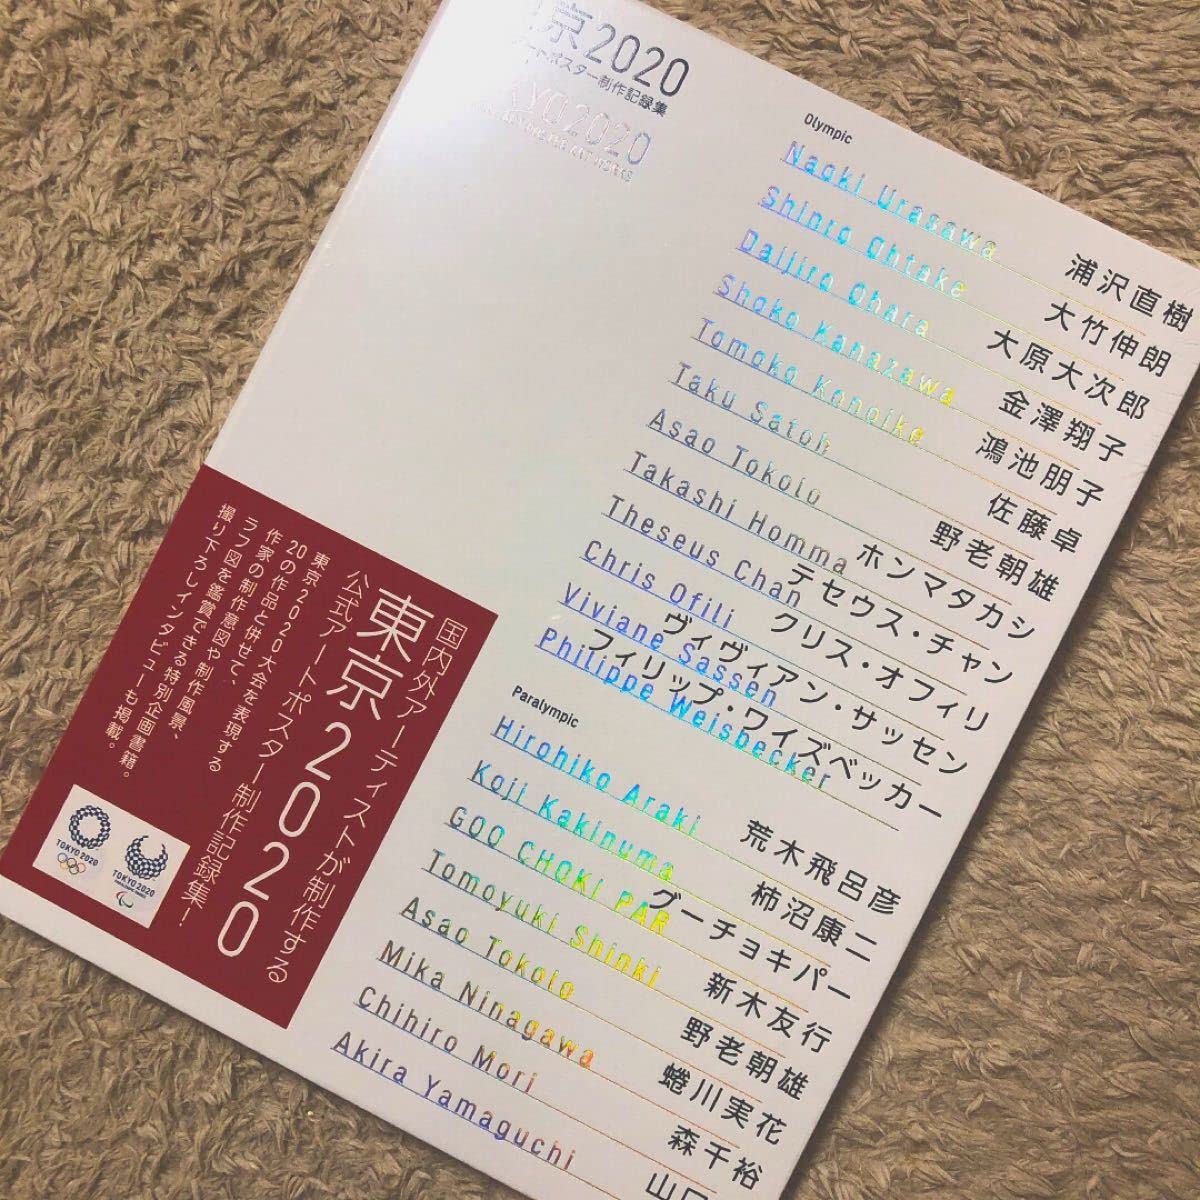 京2020
ポスター制作記録集
TOKYO2020
Olympic
Naoki Urasawa 浦沢直樹
Shinro Ohtake 大竹伸朗
Daijiro Ohara 大原大次郎
Shoko Kanazawa 金澤翔子
Tomoko Konoike 鴻池朋子
Taku Satoh 佐藤卓
Asao Tokolo 野老朝雄
Takashi Homma ホンマタカシ
Theseus Chan テセウス・チャン
Chris Ofili クリス・オフィリ
Viviane Sassen ヴィヴィアン・サッセン
Philippe Weisbecker フィリップ・ワイズベッカー
Paralympic
Hirohiko Araki 荒木飛呂彦
Koji Kakinuma 柿沼康二
GOO CHOKI PAR グーチョキパー
Tomoyuki Shinki 新木友行
Asao Tokolo 野老朝雄
Mika Ninagawa 蜷川実花
Chihiro Mori 森千裕
Akira Yamaguchi 山口
国内外アーティストが制作する
東京2020
公式アートポスター制作記録集!
東京2020大会を表現する
20の作品と併せて、
作家の制作意図や制作風景、
ラフ図を鑑賞できる特別企画書籍。
撮り下ろしインタビューも掲載。
TOKYO 2020
TOKYO 2020
PARALYMPIC GAMES